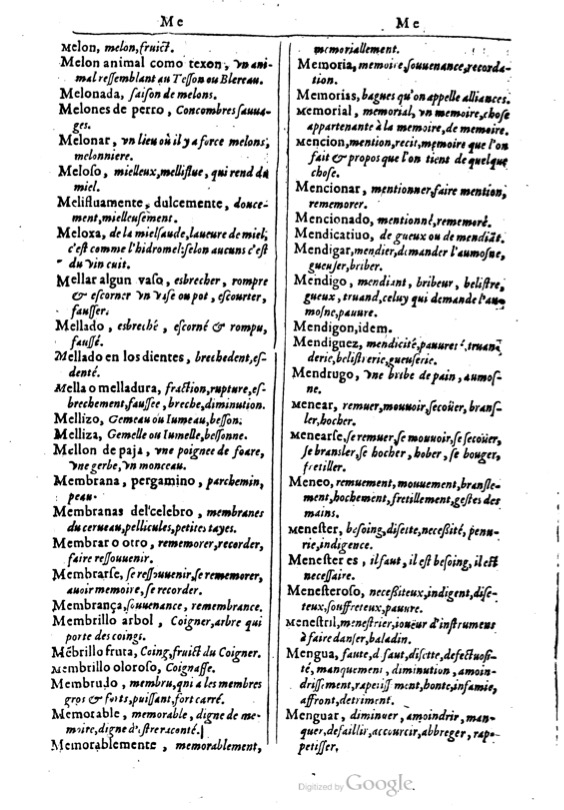 Me
Melon, melon, fruict.
Melon animal como texon, vn ani-
mal ressemblant au Tesson ou Blereau.
Melonada, saison de melons.
Melones de perro, Concombres sauua-
ges.
Melonar, vn lieu où il y a force melons,
melonniere.
Meloso, mielleux, melliflue, qui rend du
miel.
Melifluamente, dulcemente, douce-
ment, mielleusément.
Meloxa, de la mielsaude, laueure de miel,
c'est comme l'hidromel: selon aucuns c'est
du vin cuit.
Mellar algun vaso, esbrecher, rompre
& escorner vn vase ou pot, escourter,
fausser.
Mellado, esbreché, escorné & rompu,
faussé.
Mellado en los dientes, brechedent, es-
denté.
Mella o melladura, fraction, rupture, es-
brechement, faussee, breche, diminution.
Mellizo, Gemeau ou Iumeau, besson.
Melliza, Gemelle ou Iumelle, bessonne.
Mellon de paja, vne poignee de foare,
vne gerbe, vn monceau.
Membrana, pergamino, parchemin,
peau.
Membranas del celebro, membranes
du cerueau, pellicules, petites tayes.
Membrar o otro, rememorer, recorder,
faire ressouuenir.
Membrarse, se ressouuenir, se rememorer,
auoir memoire, se recorder.
Membrança, souuenance, remembrance.
Membrillo arbol, Coigner, arbre qui
porte des coings.
Mẽbrillo fruta, Coing, fruict du Coigner.
Membrillo oloroso, Coignasse.
Membrudo, membru, qui a les membres
gros & forts, puissant, fort carré.
Memorable, memorable, digne de me-
moire, digne d'estre raconté.
Memorablemente, memorablement,
Me
memoriallement.
Memoria, memoire, souuenance, recorda-
tion.
Memorias, bagues qu'on appelle alliances.
Memorial, memorial, vn memoire, chose
appartenante à la memoire, de memoire.
Mencion, mention, recit, memoire que l'on
fait & propos que l'on tient de quelque
chose.
Mencionar, mentionner, faire mention,
rememorer.
Mencionado, mentionné, rememoré.
Mendicatiuo, de gueux ou de mendiãt.
Mendigar, mendier, demander l'aumosne,
gueuser, briber.
Mendigo, mendiant, bribeur, belistre,
gueux, truand, celuy qui demande l'au-
mosne, pauure.
Mendigon, idem.
Mendiguez, mendicité, pauureté, truan-
derie, belistrerie, gueuserie.
Mendrugo, vne bribe de pain, aumos-
ne.
Menear, remuer, mouuoir, secoüer, brans-
ler, hocher.
Menearse, se remuer, se mouuoir, se secoüer,
se bransler, se hocher, hober, se bouger,
fretiller.
Meneo, remuement, mouuement, bransle-
ment, hochement, fretillement, gestes des
mains.
Menester, besoing, disette, necessité, penu-
rie, indigence.
Menester es, il faut, il est besoing, il est
necessaire.
Menesteroso, necessiteux, indigent, dise-
teux, souffreteux, pauure.
Menestril, menestrier, ioüeur d'instrumens
à faire danser, baladin.
Mengua, faute, defaut, disette, defectuosi-
té, manquement, diminution, amoin-
drissement, rapetissement, honte, infamie,
affront, detriment.
Menguar, diminuer, amoindrir, man-
quer, defaillir, accourcir, abbreger, rap-
petisser,
Digitized by Google